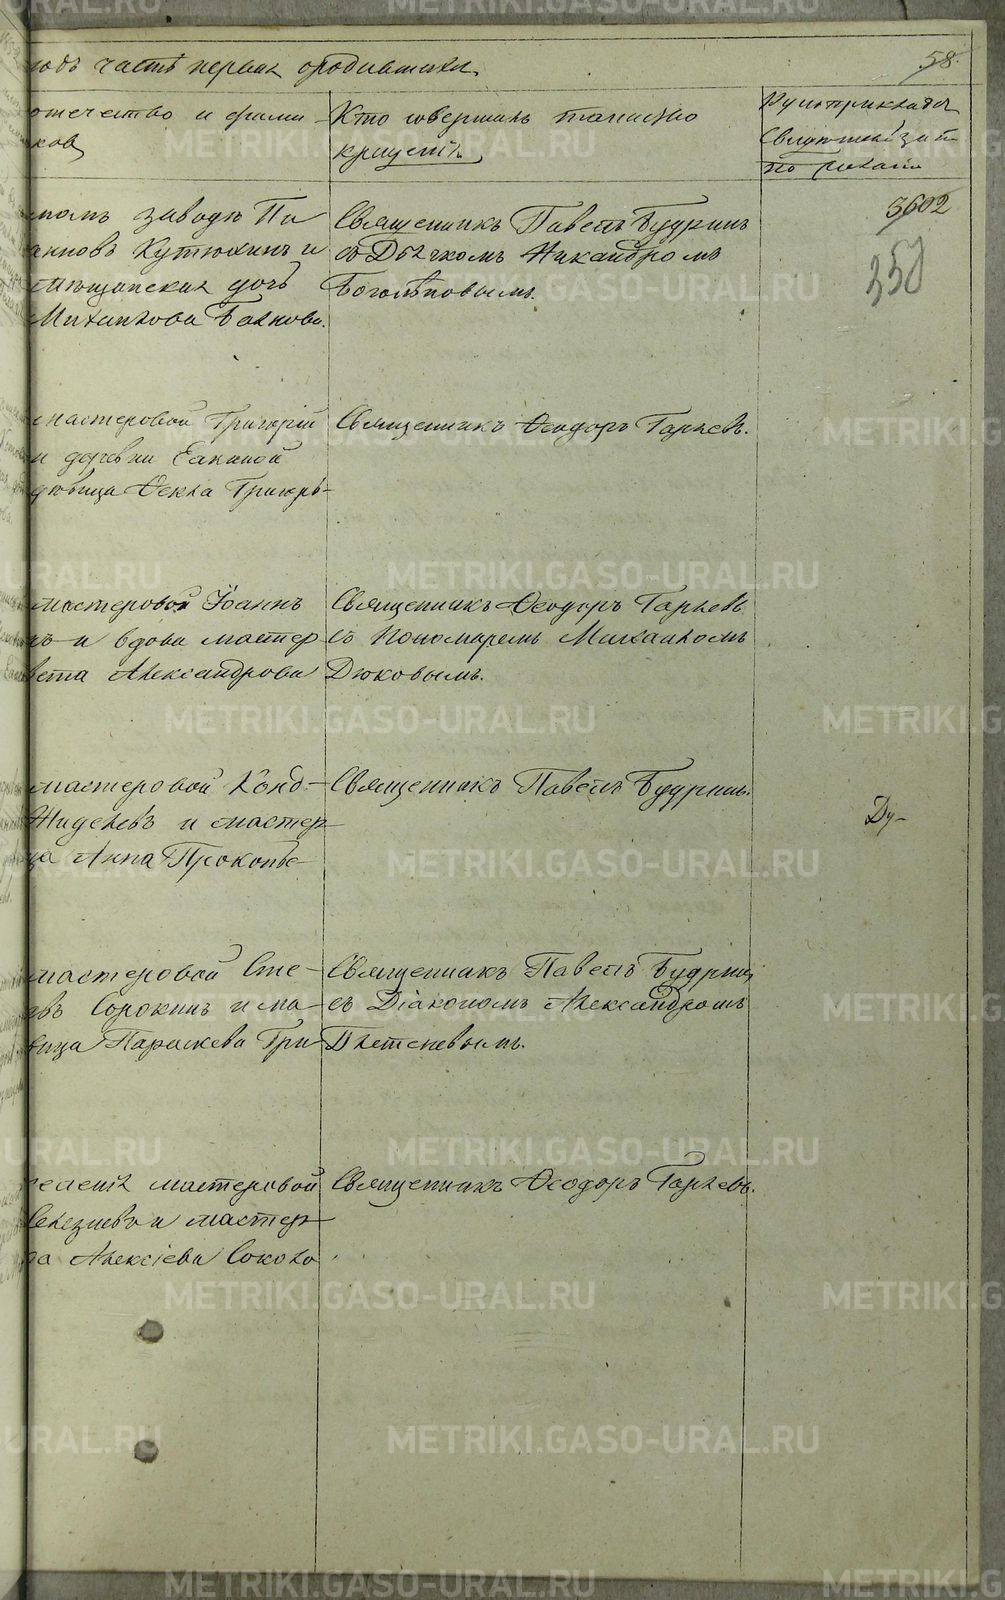 годъ часть первая о родившихся.
58.
отечество и фами-
ков
Кто совершалъ таинство
крещенія
Рукоприкладст
свидѣтелей запи
по желанію
3602
358
заводѣ
Кутюхинъ и
мѣщанская дочь
Михаилова
Священникъ Павелъ Будринъ
съ Дьячкомъ Никандромъ
Боголѣповымъ.
мастеровой Григорій
и деревни
дѣвица Ѳекла Григорь-
Священникъ Ѳеодоръ Гаряевъ.
мастеровой Іоаннъ
и вдова мастер
вета Александрова
Священникъ Ѳеодоръ Гаряевъ
съ Пономаремъ Михаиломъ
Дюковымъ.
мастеровой Конд-
Жиделевъ и мастер-
ца Анна Прокопье-
Священникъ Павелъ Будринъ.
Ду-
мастеровой Сте-
Сорокинъ и ма-
вица Параскева Гри-
Священникъ Павелъ Будринъ
съ Діакономъ Александромъ
Плетеневымъ.
мастеровой
и мастер-
Алексіева Соколо
Священникъ Ѳеодоръ Гаряевъ.
METRIKI.GASO-URAL.RU